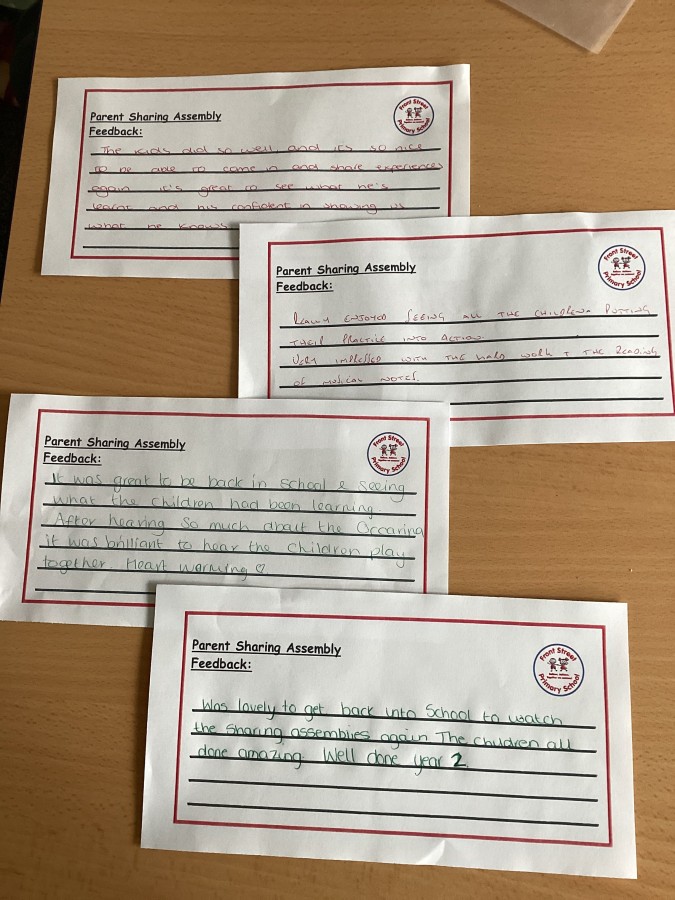 Parent Sharing Assembly
Feedback:
Front Street
Primary School
The kids did so well and it's so nice
to be able to come in and share experiences
again it's great to see what he's
learnt and his confident in showing us
what he knows
Parent Sharing Assembly
Feedback:
Front Street
Primary School
REALLY ENJOYED SEEING ALL THE CHILDREN PUTTING
THEIR PRACTICE INTO ACTION.
VERY IMPRESSED WITH THE HARD WORK + THE READING
OF MUSICAL NOTES.
Parent Sharing Assembly
Feedback:
Front Street
Primary School
It was great to be back in school & seeing
what the children had been learning.
After hearing so much about the Occarina
it was brilliant to hear the children play
together. Heart warming ♡
Parent Sharing Assembly
Feedback:
Front Street
Primary School
Was lovely to get back into School to watch
the sharing assemblies again The children all
done amazing. Well done year 2